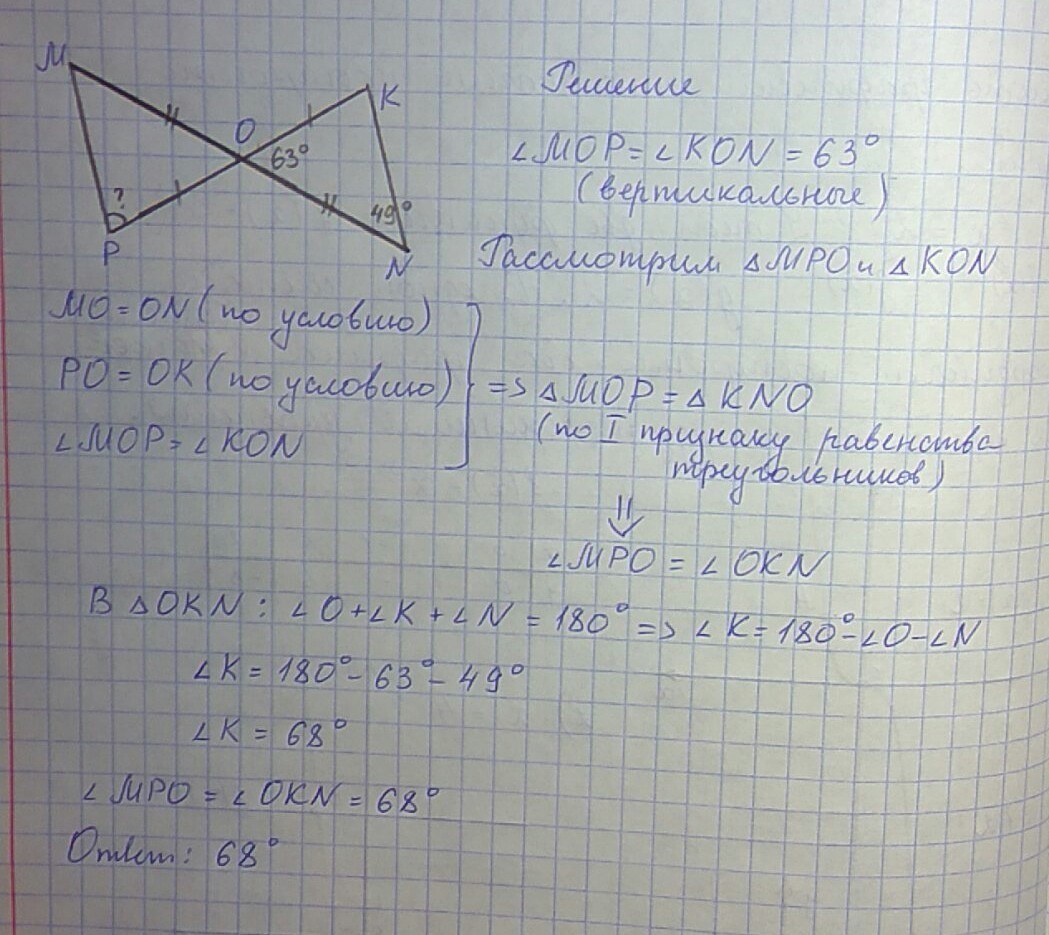 M
K
O
63°
?
49°
P
N
Решение
∠MOP = ∠KON = 63°
(вертикальные)
Рассмотрим △MPO и △KON
MO = ON (по условию)
PO = OK (по условию)
∠MOP = ∠KON
=> △MOP = △KNO
(по I признаку равенства
треугольников)
⇓
∠MPO = ∠OKN
В △OKN: ∠O + ∠K + ∠N = 180° => ∠K = 180° - ∠O - ∠N
∠K = 180° - 63° - 49°
∠K = 68°
∠MPO = ∠OKN = 68°
Ответ: 68°